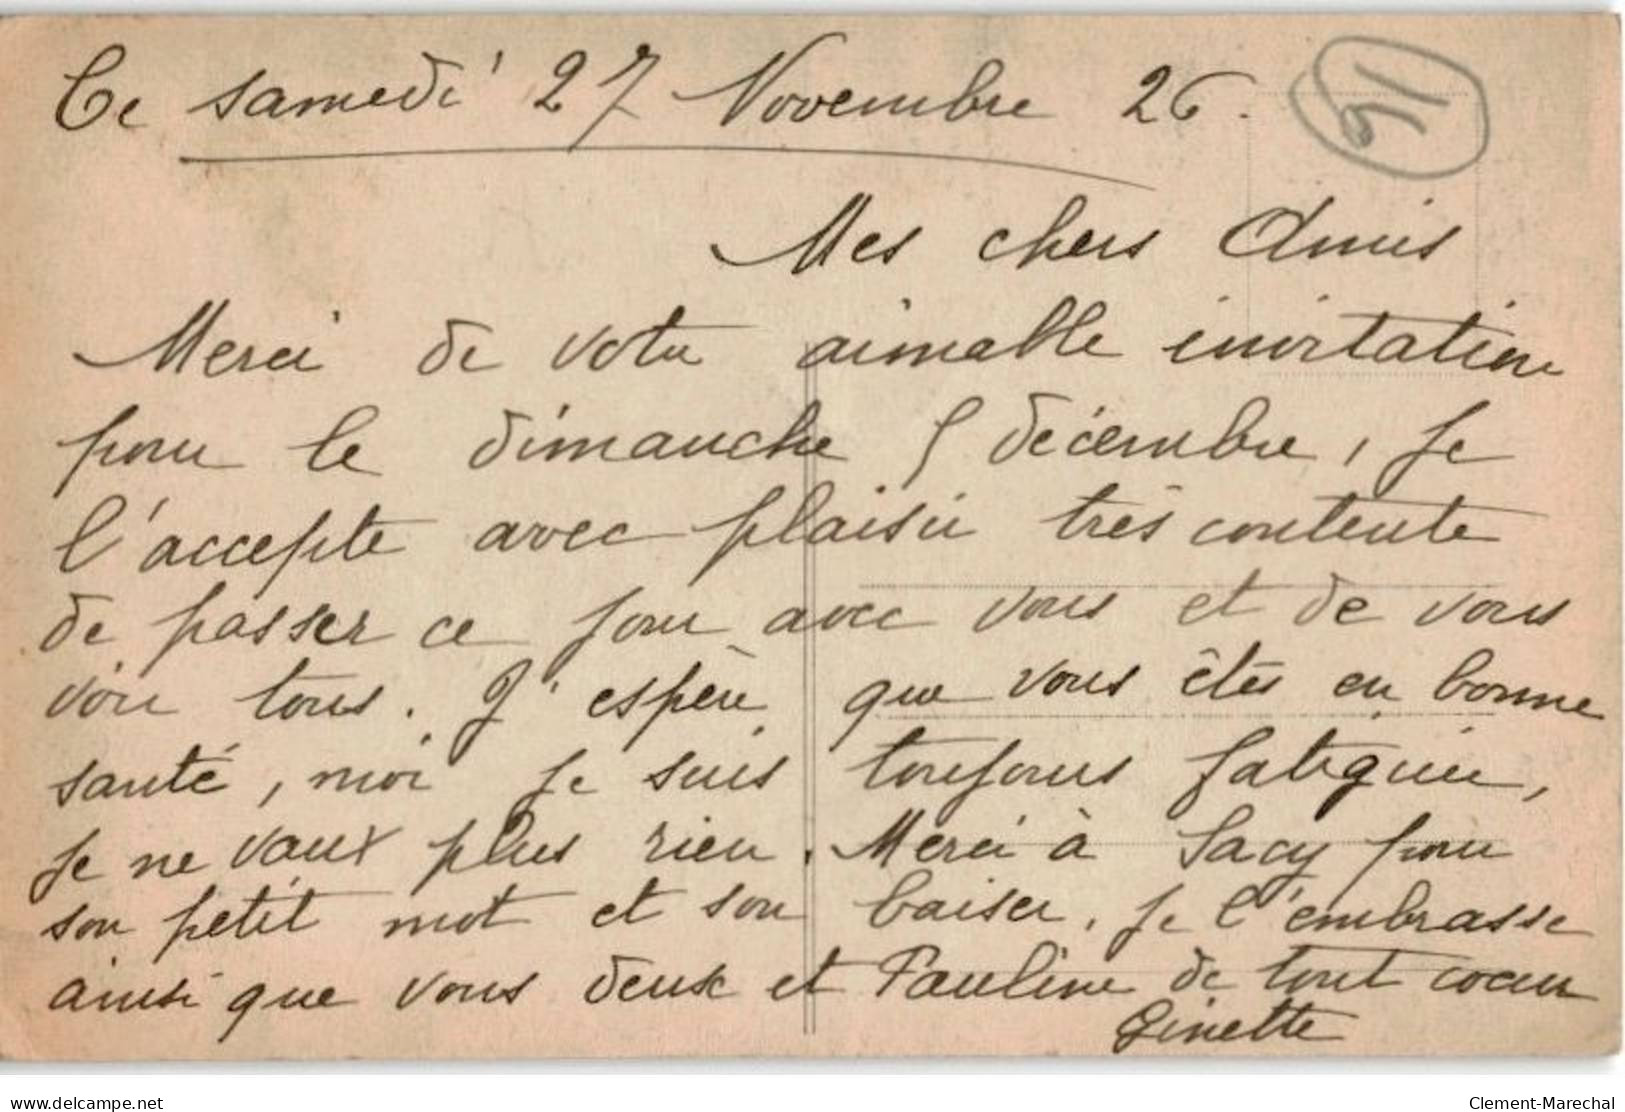 Ce samedi 27 Novembre 26.
Mes chers Amis
Merci de votre aimable invitation
pour le dimanche 5 décembre, je
l'accepte avec plaisir très contente
de passer ce jour avec vous et de vous
voir tous. J'espère que vous êtes en bonne
santé, moi je suis toujours fatiguée,
je ne vaux plus rien. Merci à Jacy pour
son petit mot et son baiser, je l'embrasse
ainsi que vous deux et Pauline de tout coeur
Ginette
delcampe.net
Clement-Marechal